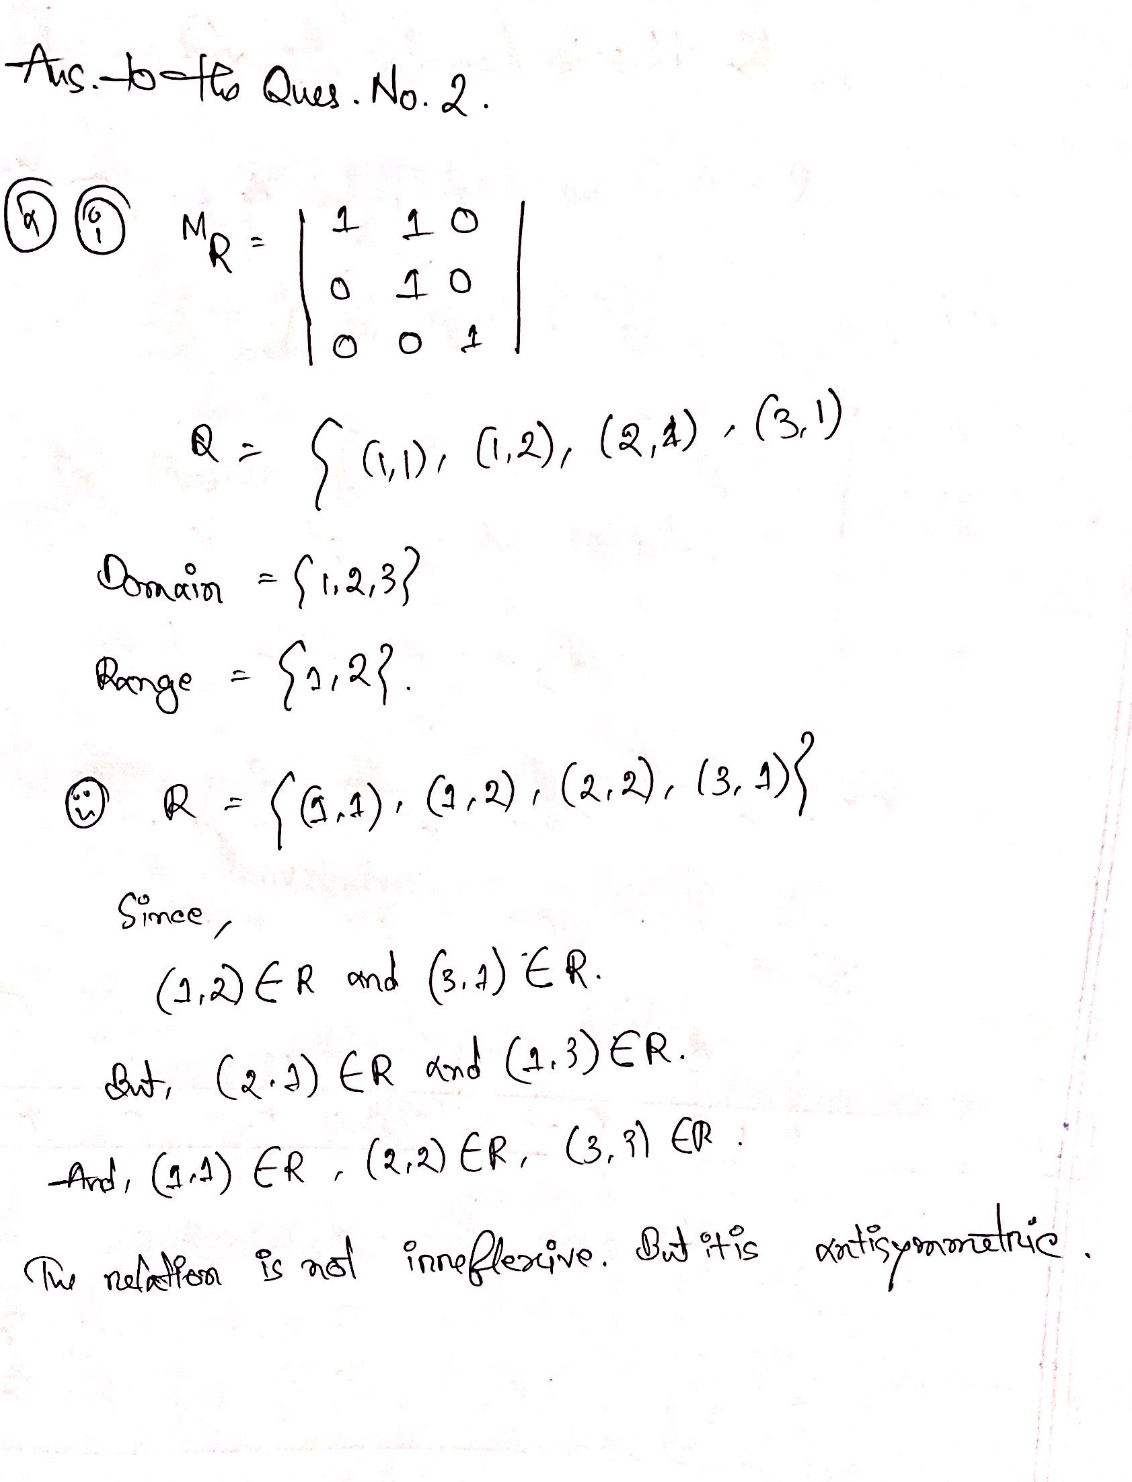 Ans. to the Ques. No. 2.
(a) (i) M_R = | 1 1 0 |
| 0 1 0 |
| 0 0 1 |
R = { (1,1), (1,2), (2,2), (3,1)
Domain = {1,2,3}
Range = {1,2}.
(ii) R = {(1,1), (1,2), (2,2), (3,1)}
Since,
(1,2) ∈ R and (3,1) ∈ R.
But, (2,1) ∈ R and (1,3) ∈ R.
And, (1,1) ∈ R, (2,2) ∈ R, (3,3) ∈ R.
The relation is not irreflexive. But it is antisymmetric.